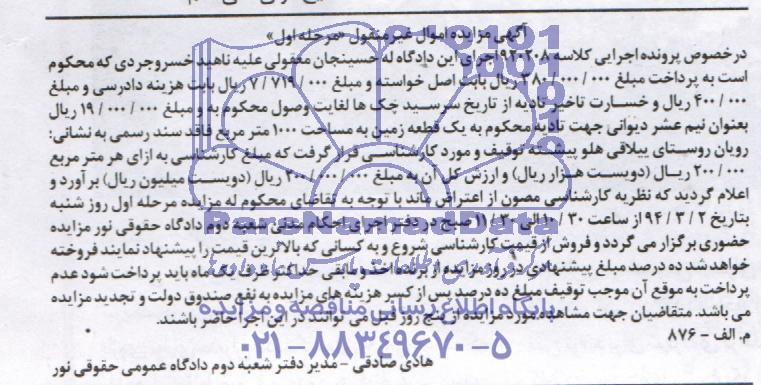 آگهی مزایده اموال غیر منقول «مرحله اول»
در خصوص پرونده اجرایی کلاسه ۲۰۸-۹۳ اجرای این دادگاه له حسینجان معقولی علیه ناهید خسروجردی که محکوم
است به پرداخت مبلغ ۳۸۰/۰۰۰/۰۰۰ ریال بابت اصل خواسته و مبلغ ۷/۷۱۹/۰۰۰ ریال بابت هزینه دادرسی و مبلغ
۴۰۰/۰۰۰ ریال و خسارت تاخیر تادیه از تاریخ سرسید چک ها لغایت وصول محکوم به و مبلغ ۱۹/۰۰۰/۰۰۰ ریال
بعنوان نیم عشر دیوانی جهت تادیه محکوم به یک قطعه زمین به مساحت ۱۰۰۰ متر مربع فاقد سند رسمی به نشانی:
رویان روستای ییلاقی هلو پشته توقیف و مورد کارشناسی قرار گرفت که مبلغ کارشناسی به ازای هر متر مربع
۲۰۰/۰۰۰ ریال (دویست هزار ریال) و ارزش کل آن به مبلغ ۲۰۰/۰۰۰/۰۰۰ ریال (دویست میلیون ریال) برآورد و
اعلام گردید که نظریه کارشناسی مصون از اعتراض ماند با توجه به تقاضای محکوم له مزایده مرحله اول روز شنبه
بتاریخ ۹۴/۳/۲ از ساعت ۱۰/۳۰ الی ۱۱/۳۰ صبح در دفتر اجرای احکام مدنی شعبه دوم دادگاه حقوقی نور مزایده
حضوری برگزار می گردد و فروش از قیمت کارشناسی شروع و به کسانی که بالاترین قیمت را پیشنهاد نمایند فروخته
خواهد شد ده درصد مبلغ پیشنهادی در روز مزایده از برنده اخذ و مابقی حداکثر ظرف یک ماه باید پرداخت شود عدم
پرداخت به موقع آن موجب توقیف مبلغ ده درصد پس از کسر هزینه های مزایده به نفع صندوق دولت و تجدید مزایده
می باشد. متقاضیان جهت مشاهده مورد مزایده از پنج روز قبل می توانند در این اجرا حاضر باشند.
م. الف - ۸۷۶
هادی صادقی - مدیر دفتر شعبه دوم دادگاه عمومی حقوقی نور
ParsNamadData
پایگاه اطلاع رسانی مناقصه و مزایده
۰۲۱-۸۸۳۴۹۶۷۰-۵